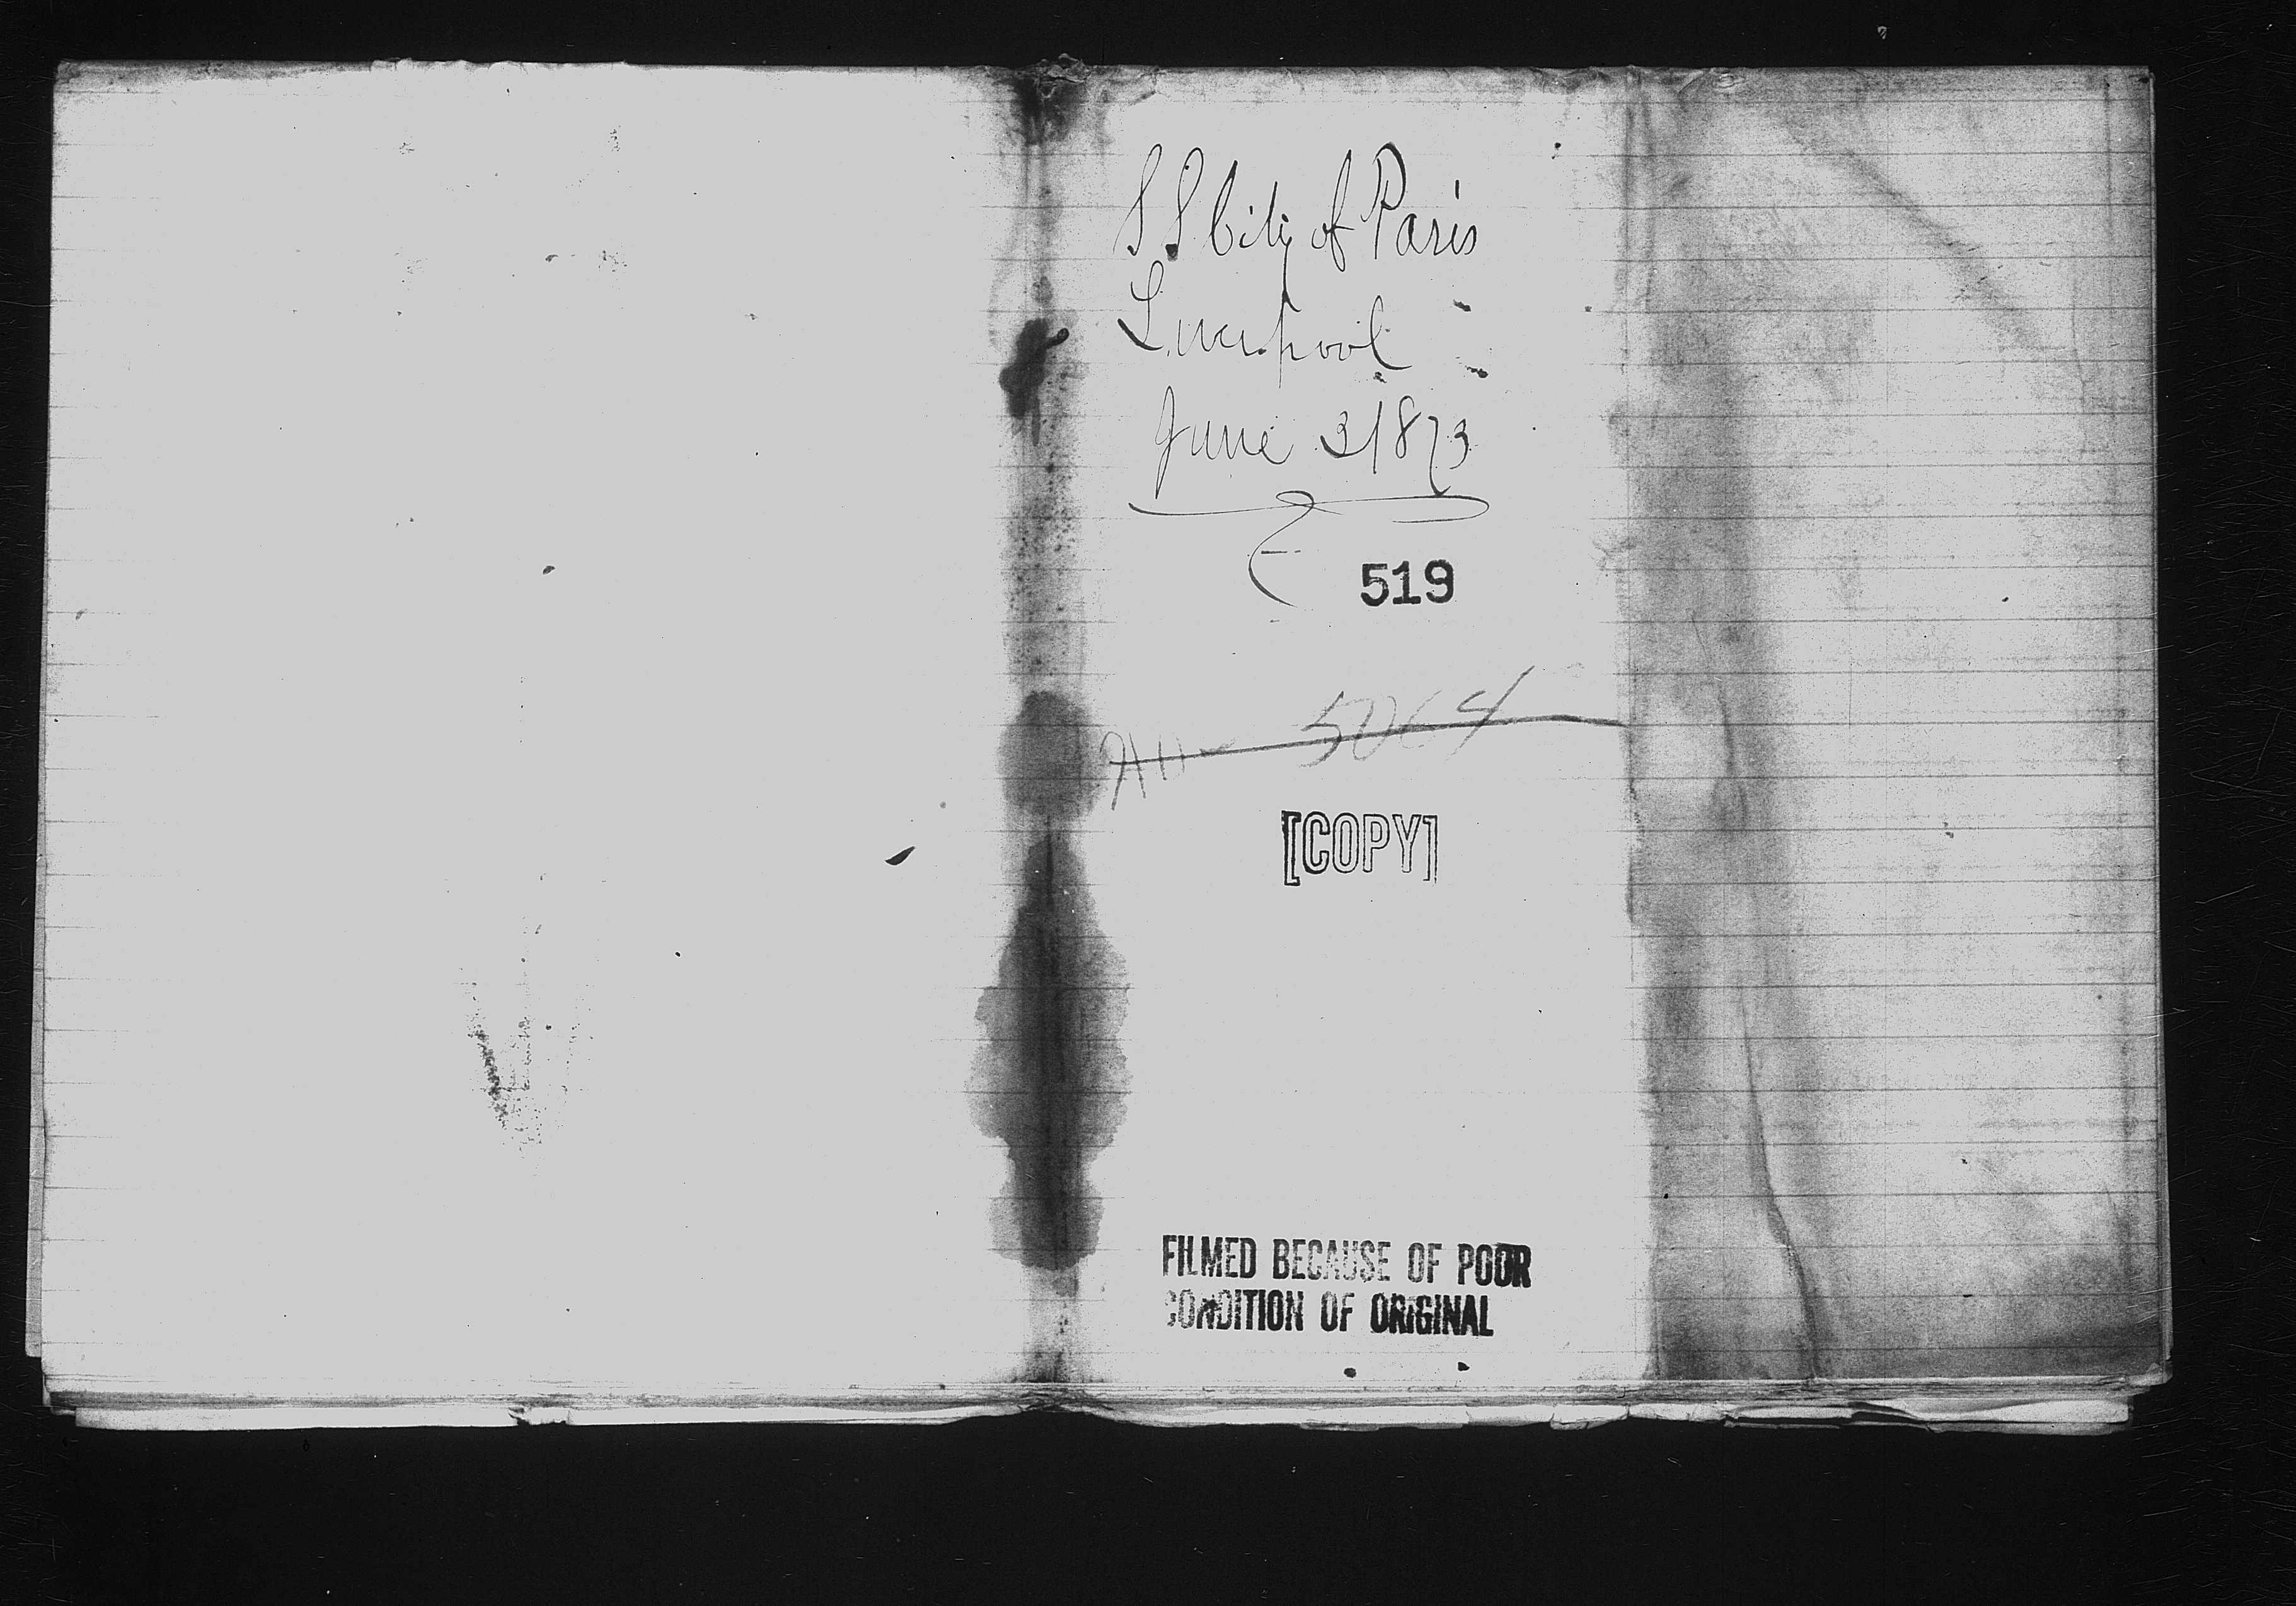 S S City of Paris
Liverpool
June 3 1873
519
5064
[COPY]
FILMED BECAUSE OF POOR
CONDITION OF ORIGINAL